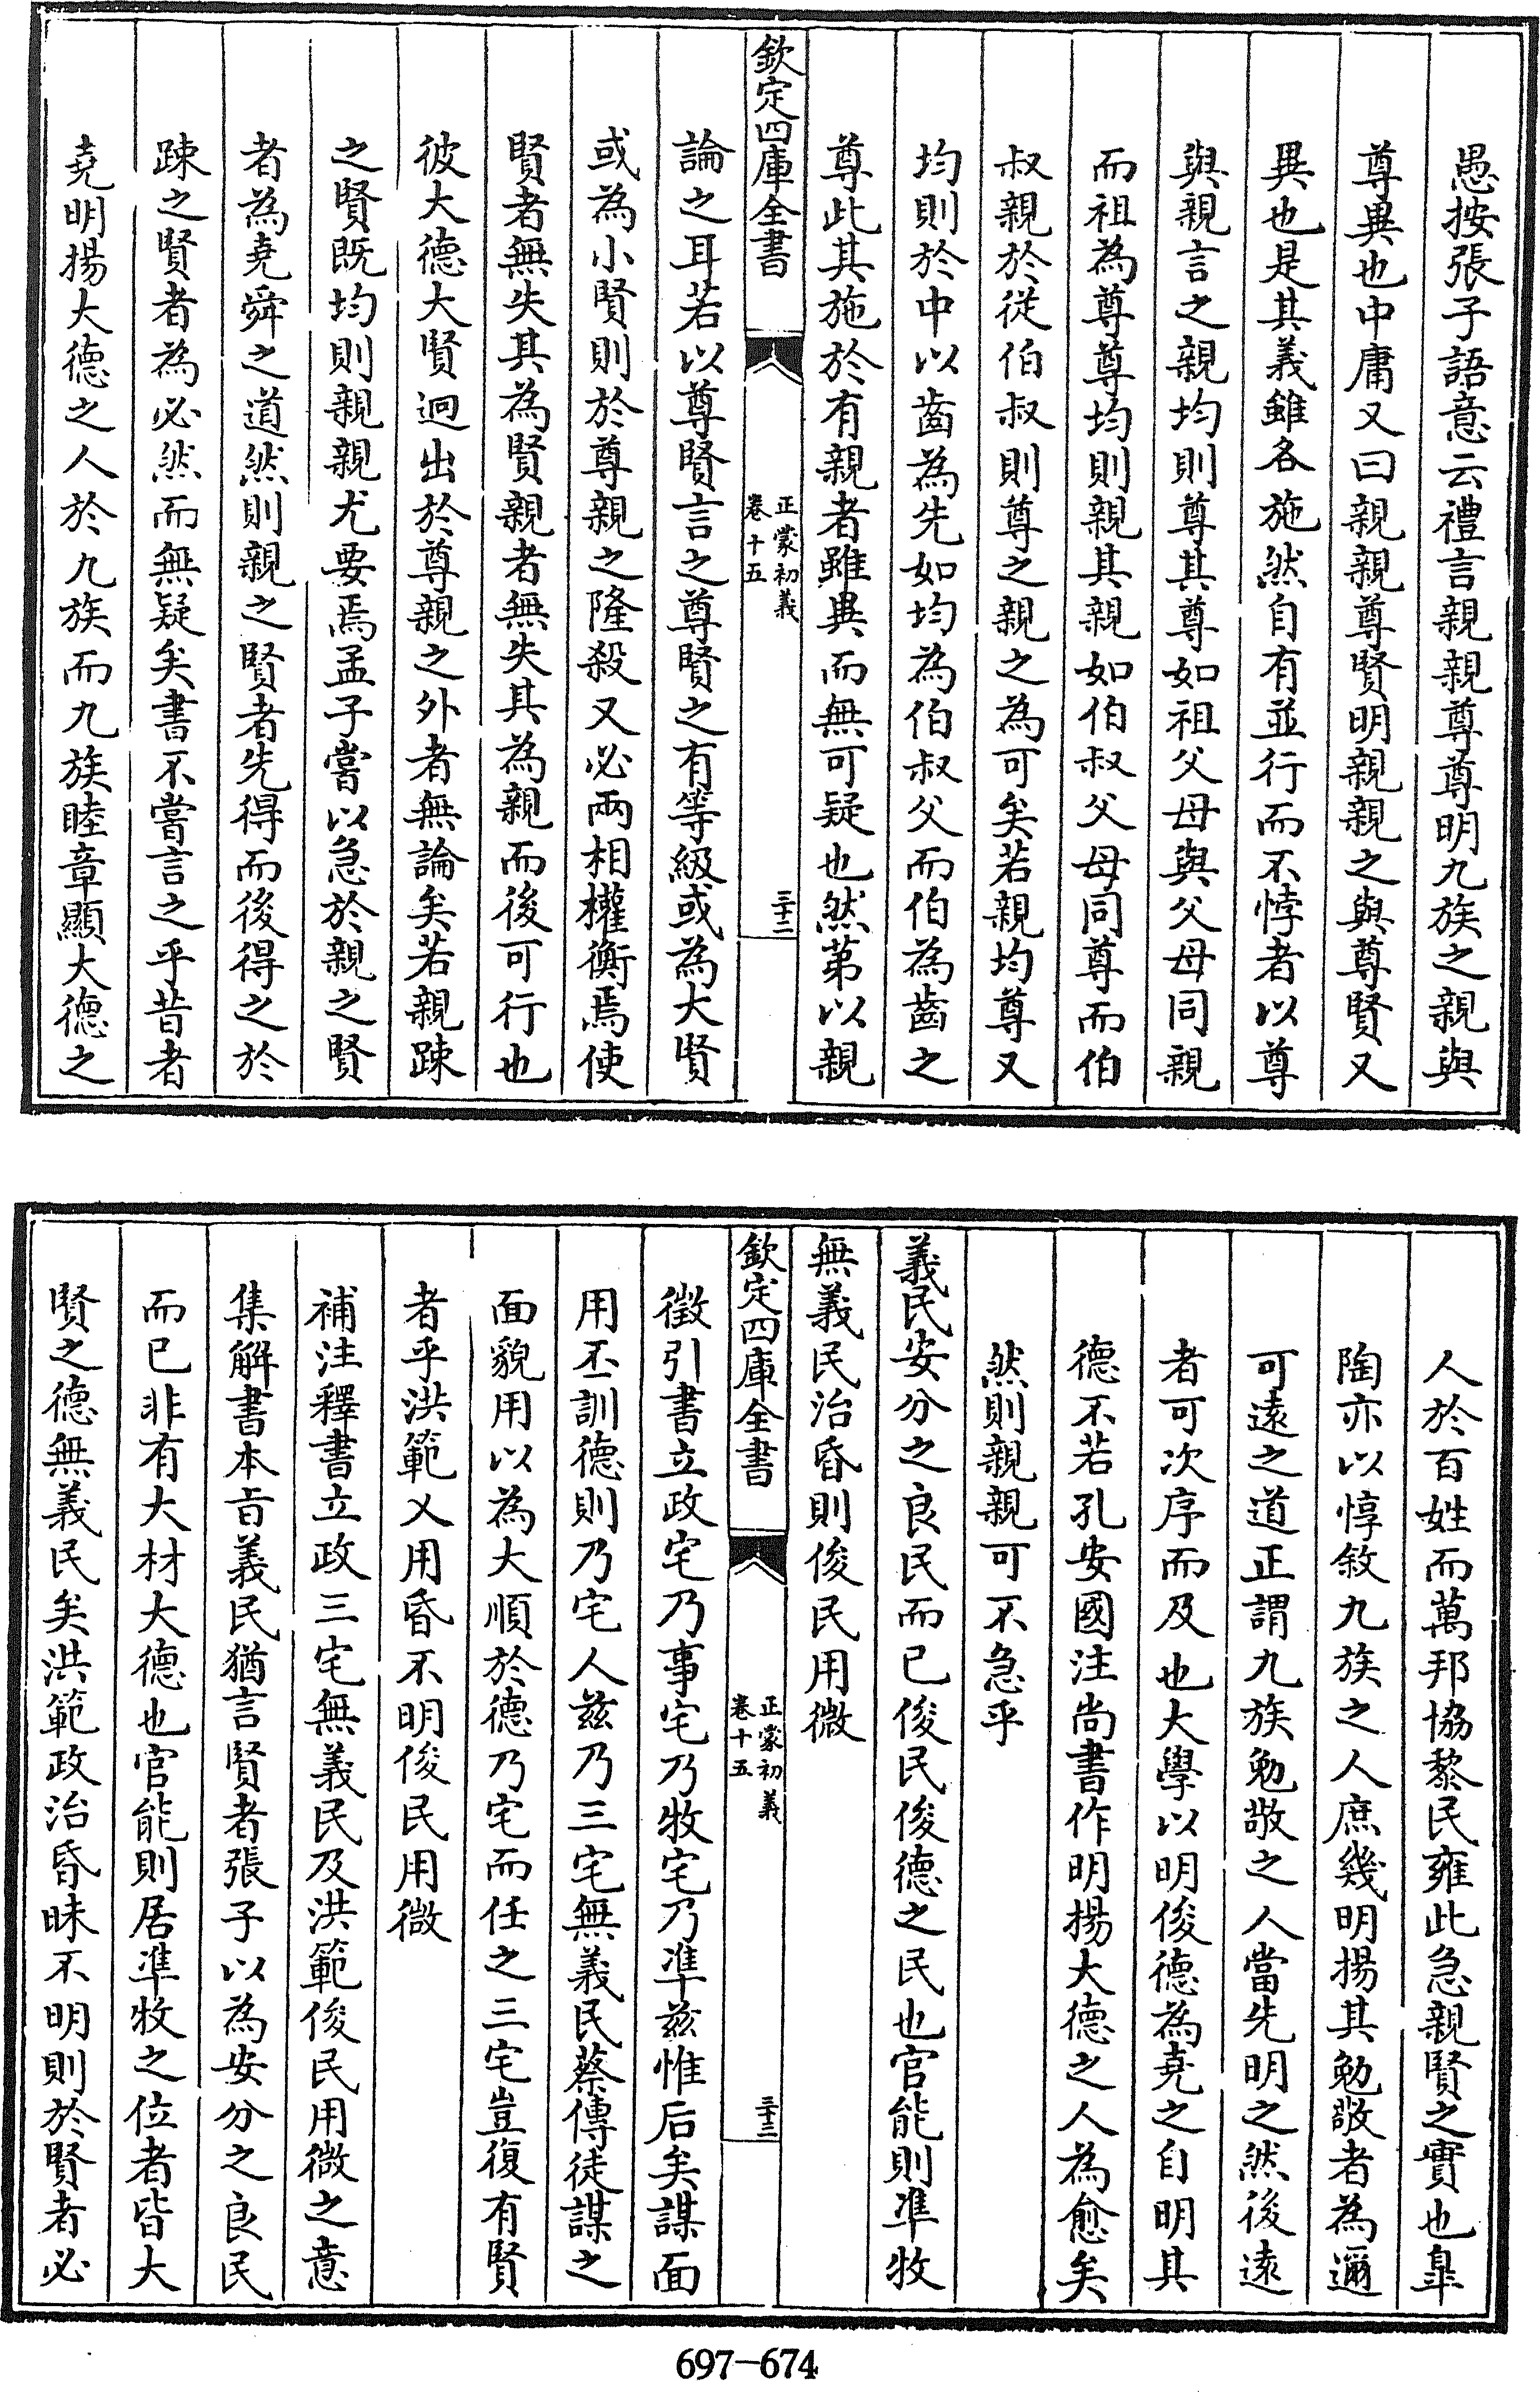 愚按張子語意云禮言親親尊尊明九族之親與
尊異也中庸又曰親親尊賢明親親之與尊賢又
異也是其義雖各施然自有並行而不悖者以尊
與親言之親均則尊其尊如祖父母與父母同親
而祖為尊尊均則親其親如伯叔父母同尊而伯
叔親於從伯叔則尊之親之為可矣若親均尊又
均則於中以齒為先如均為伯叔父而伯為齒之
尊此其施於有親者雖異而無可疑也然苐以親
欽定四庫全書
正蒙初義
卷十五
三十二
論之耳若以尊賢言之尊賢之有等級或為大賢
或為小賢則於尊親之隆殺又必兩相權衡焉使
賢者無失其為賢親者無失其為親而後可行也
彼大德大賢迥出於尊親之外者無論矣若親踈
之賢既均則親親尤要焉孟子嘗以急於親之賢
者為堯舜之道然則親之賢者先得而後得之於
踈之賢者為必然而無疑矣書不嘗言之乎昔者
堯明揚大德之人於九族而九族睦章顯大德之
人於百姓而萬邦協黎民雍此急親賢之實也臯
陶亦以惇敘九族之人庶幾明揚其勉敬者為邇
可遠之道正謂九族勉敬之人當先明之然後遠
者可次序而及也大學以明俊德為堯之自明其
德不若孔安國注尚書作明揚大德之人為愈矣
然則親親可不急乎
義民安分之良民而已俊民俊德之民也官能則準牧
無義民治昏則俊民用微
欽定四庫全書
正蒙初義
卷十五
三十三
徵引書立政宅乃事宅乃牧宅乃準兹惟后矣謀面
用丕訓德則乃宅人兹乃三宅無義民蔡傳徒謀之
面貌用以為大順於德乃宅而任之三宅豈復有賢
者乎洪範乂用昏不明俊民用微
補注釋書立政三宅無義民及洪範俊民用微之意
集解書本旨義民猶言賢者張子以為安分之良民
而已非有大材大德也官能則居準牧之位者皆大
賢之德無義民矣洪範政治昏昧不明則於賢者必
697-674